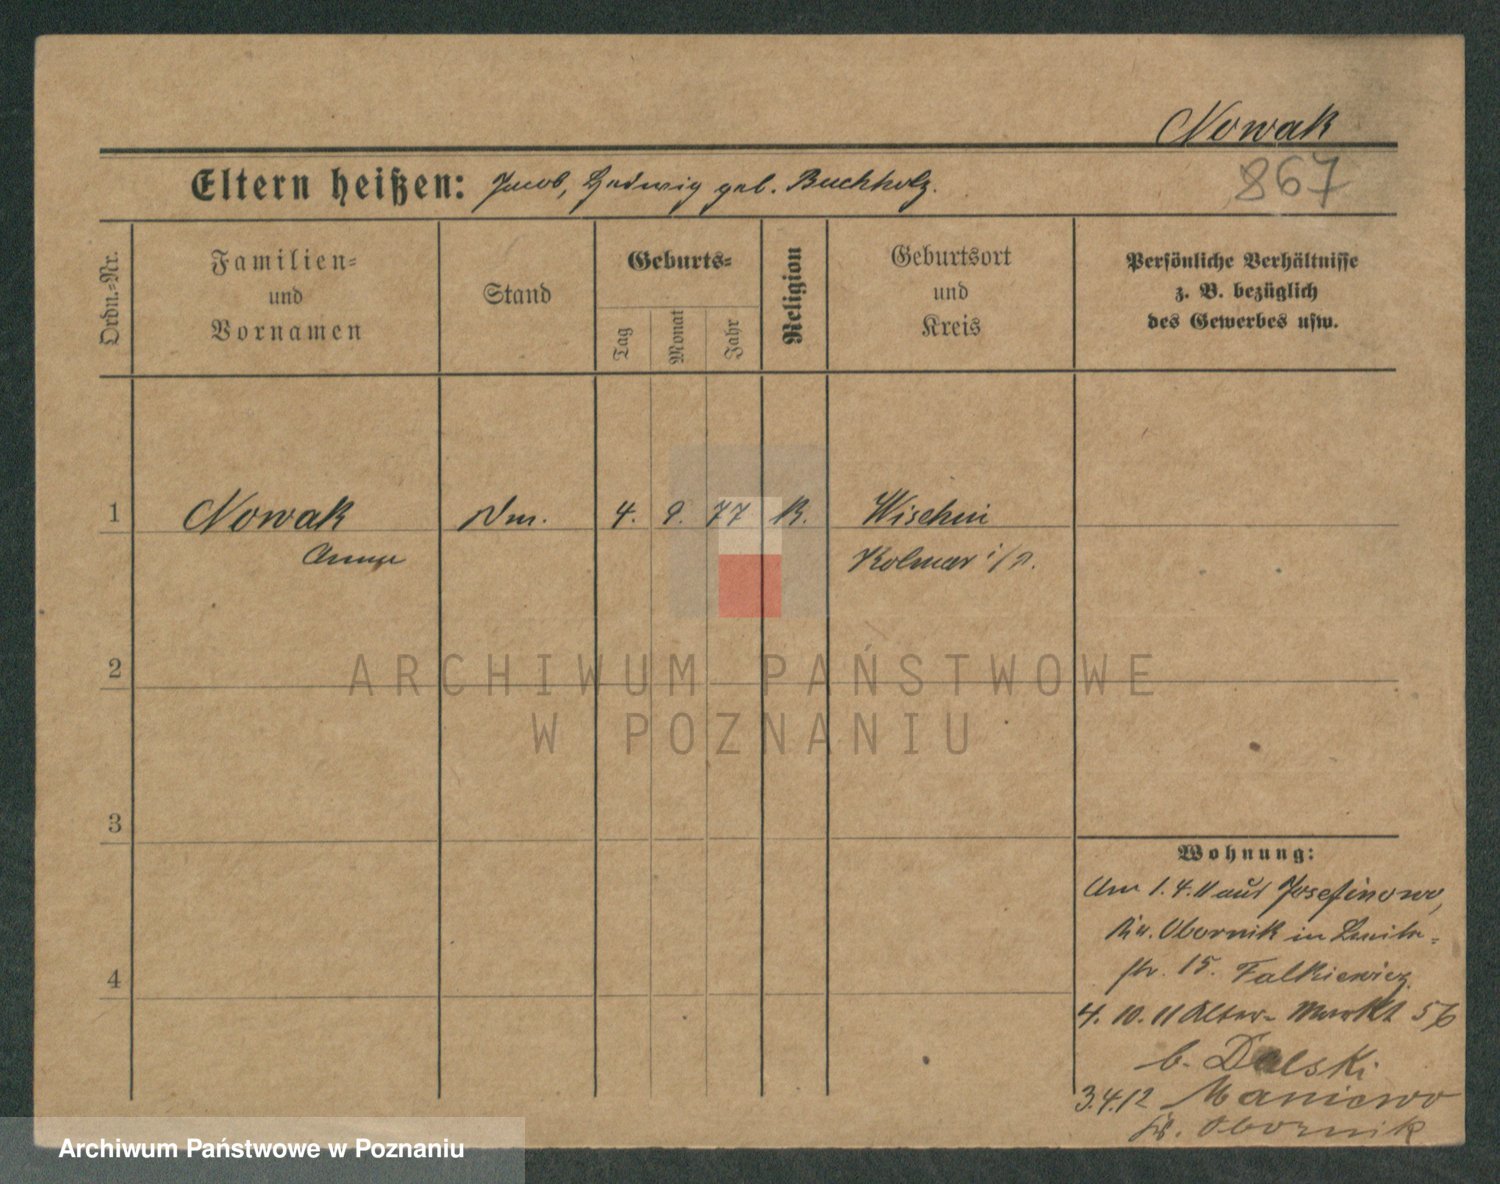 Nowak
867
Eltern heißen: Jacob, Hedwig geb. Buchholz.
Ordn.=Nr.
Familien=
und
Vornamen
Stand
Geburts=
Tag
Monat
Jahr
Religion
Geburtsort
und
Kreis
Persönliche Verhältnisse
z. B. bezüglich
des Gewerbes usw.
1 Nowak 4. 9. 77 K. Wischin
Kolmar i/P.
2
3
4
ARCHIWUM PAŃSTWOWE
W POZNANIU
Wohnung:
Am 1.4.11 aus Josefinowo,
Kr. Obornik in
str. 15. Falkiewicz
4. 10. 11 Alter- Markt 56
b. Dolski
3.4.12 Maniewo
Kr. Obornik
Archiwum Państwowe w Poznaniu